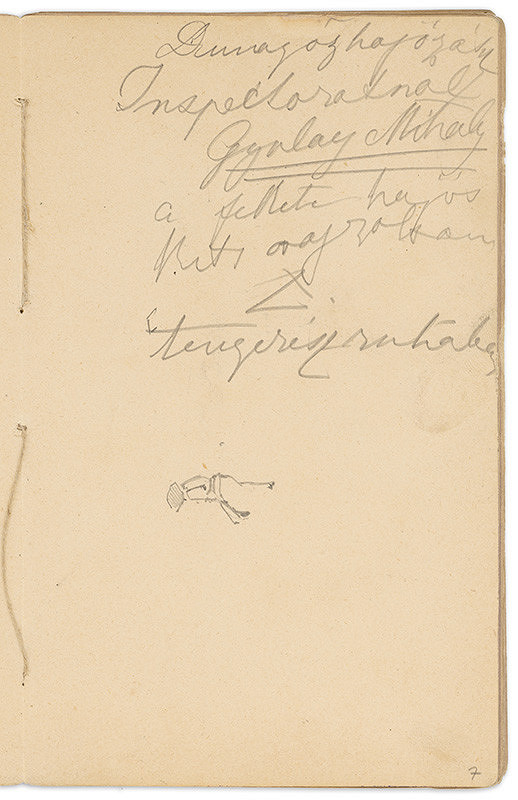 Dunagőzhajózási
Inspectoratnál
Gyulay Mihály
a fekete hajós
kit rajzoltam
X.
tengerészruhába
7